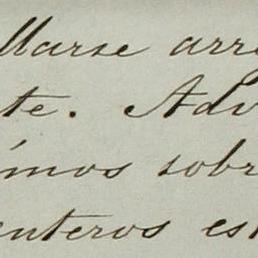 llarse arr
te. Adv
imos sobr
enteros est